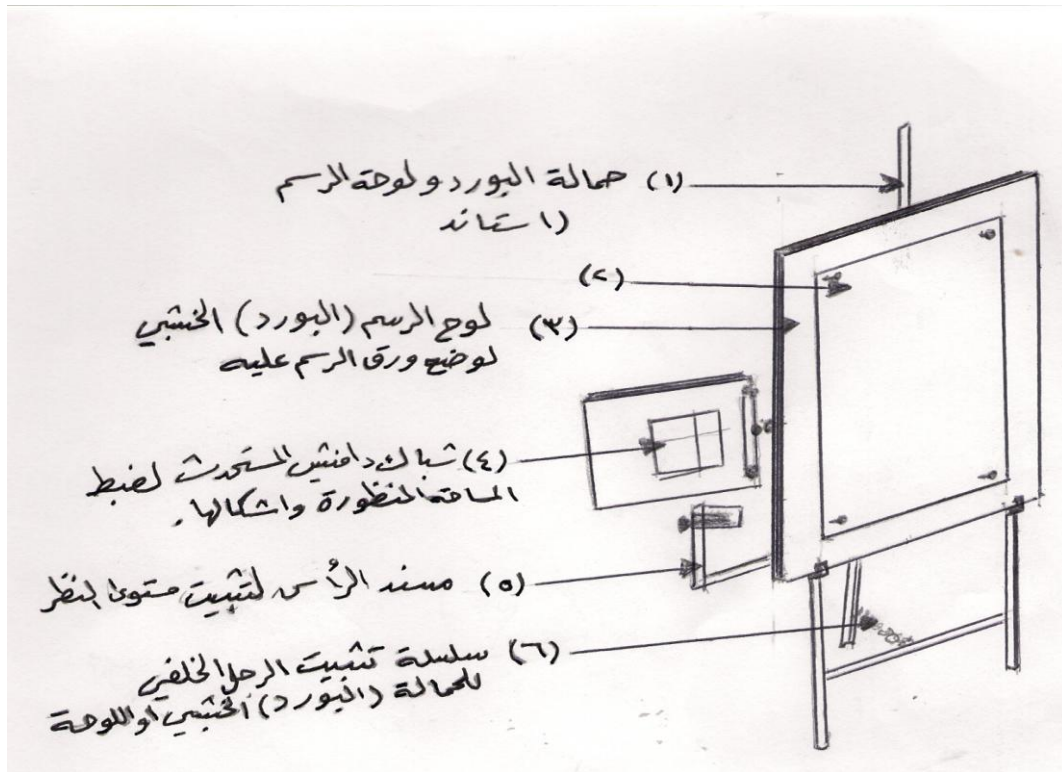 (١) حمالة البورد ولوحة الرسم
(استاند
(٢)
(٣) لوح الرسم (البورد) الخشبي
لوضع ورق الرسم عليه
(٤) شباك دافنشي المستحدث لضبط
المسافة المنظورة واشكالها.
(٥) مسند الرأس لتثبيت مستوى النظر
(٦) سلسلة تثبيت الرجل الخلفي
للحمالة (البورد) الخشبي أو اللوحة